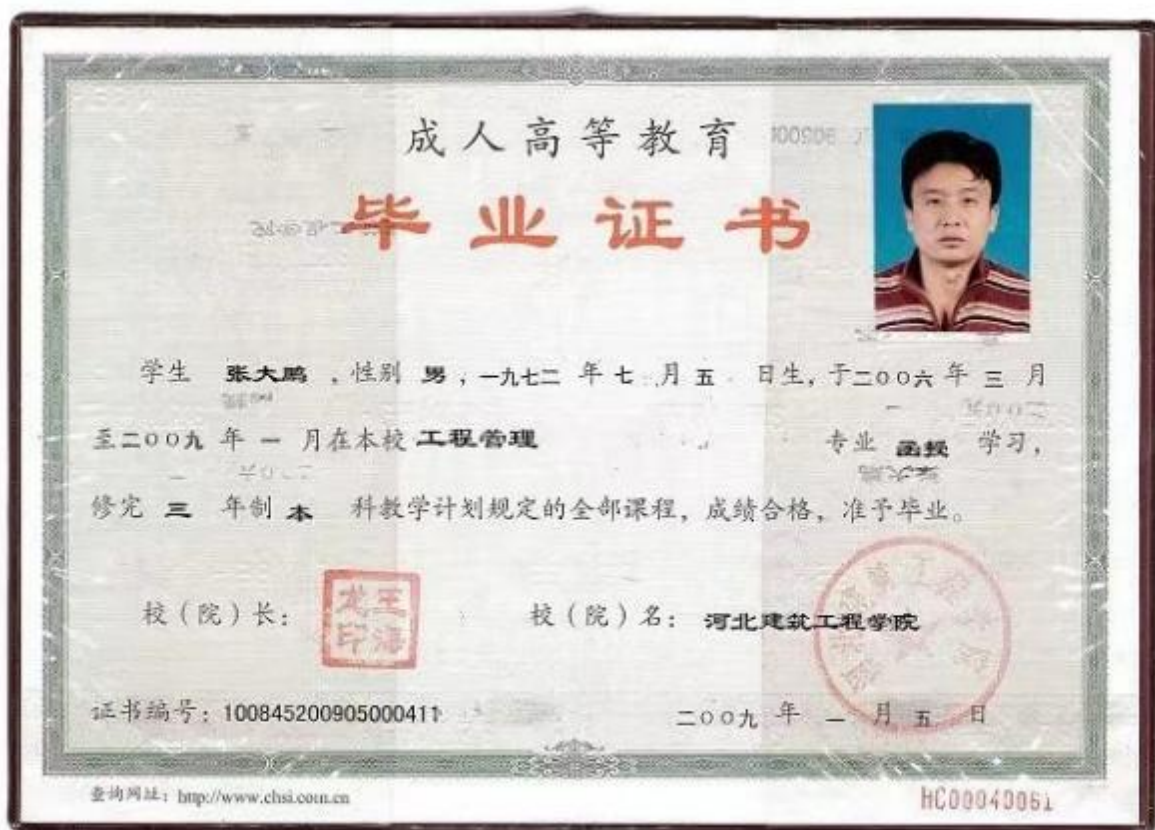 成人高等教育
毕业证书
学生 张大鹏 ,性别 男 ,一九七二 年 七 月 五 日生,于二〇〇六 年 三 月
至二〇〇九 年 一 月在本校 工程管理 专业 函授 学习,
修完 三 年制 本 科教学计划规定的全部课程,成绩合格,准予毕业。
校(院)长: 王海龙印 校(院)名: 河北建筑工程学院
证书编号:100845200905000411 二〇〇九 年 一 月 五 日
查询网址:http://www.chsi.com.cn HC00040061